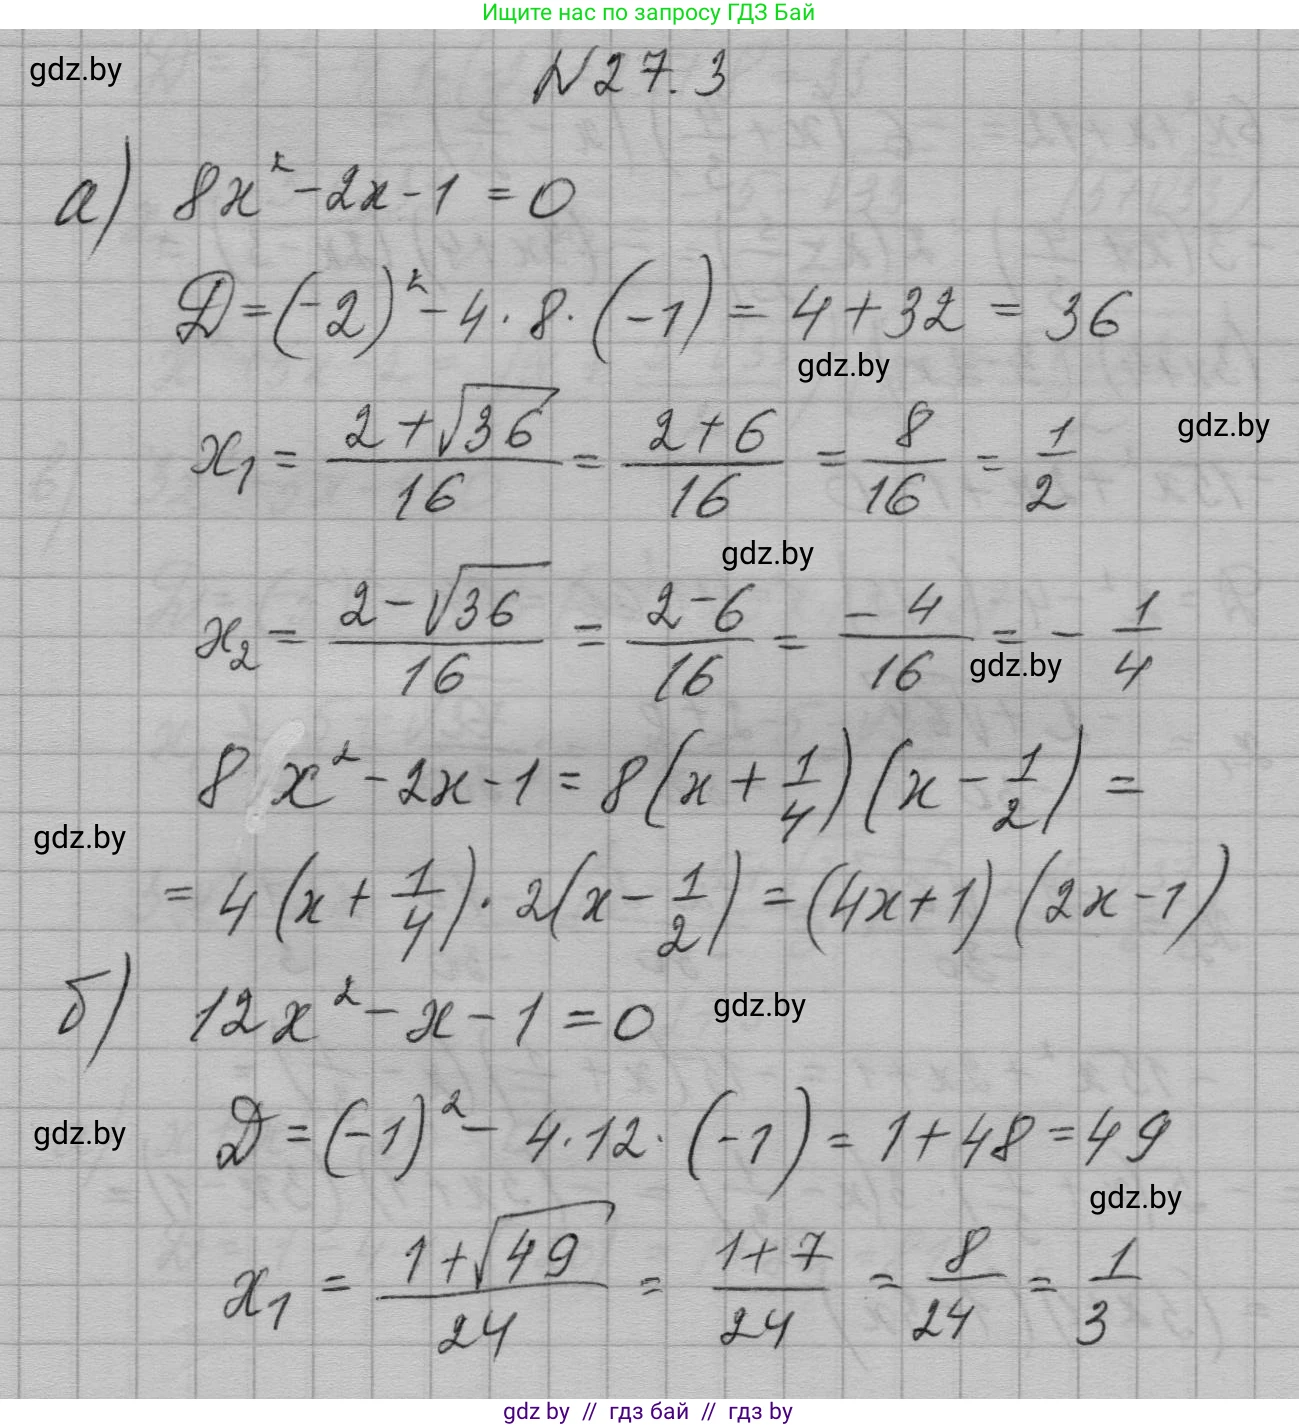 Ищите нас по запросу ГДЗ Бай
gdz.by
№ 27.3
а) 8x² - 2x - 1 = 0
Д = (-2)² - 4 · 8 · (-1) = 4 + 32 = 36
gdz.by
gdz.by
x₁ = (2 + √36)/16 = (2 + 6)/16 = 8/16 = 1/2
gdz.by
x₂ = (2 - √36)/16 = (2 - 6)/16 = -4/16 = -1/4
gdz.by
8x² - 2x - 1 = 8(x + 1/4)(x - 1/2) =
gdz.by
= 4(x + 1/4) · 2(x - 1/2) = (4x + 1)(2x - 1)
б) 12x² - x - 1 = 0
gdz.by
Д = (-1)² - 4 · 12 · (-1) = 1 + 48 = 49
gdz.by
gdz.by
x₁ = (1 + √49)/24 = (1 + 7)/24 = 8/24 = 1/3
gdz.by // гдз бай // гдз by